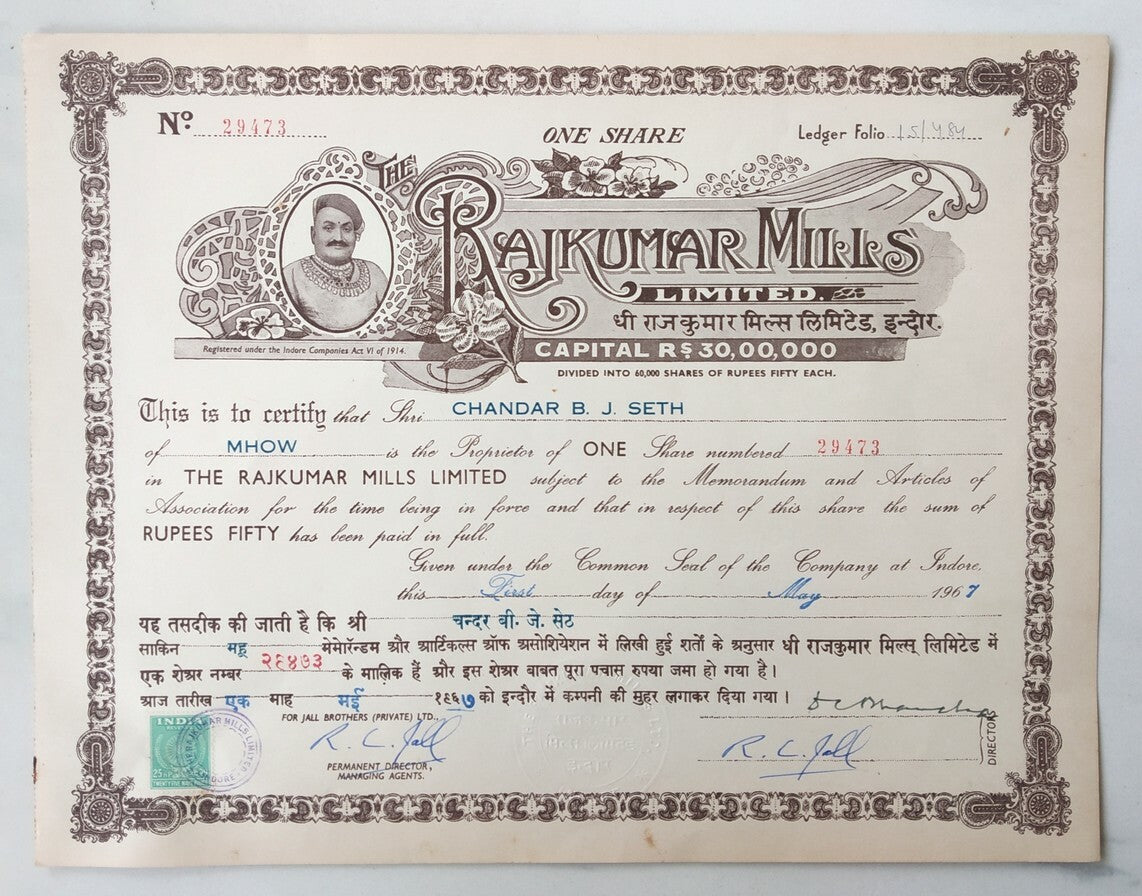 Nº 29473
ONE SHARE
Ledger Folio 15/484
THE
RAJKUMAR MILLS
LIMITED.
धी राजकुमार मिल्स लिमिटेड, इन्दौर.
Registered under the Indore Companies Act VI of 1914.
CAPITAL RS 30,00,000
DIVIDED INTO 60,000 SHARES OF RUPEES FIFTY EACH.
This is to certify that Shri CHANDAR B. J. SETH
of MHOW is the Proprietor of ONE Share numbered 29473
in THE RAJKUMAR MILLS LIMITED subject to the Memorandum and Articles of
Association for the time being in force and that in respect of this share the sum of
RUPEES FIFTY has been paid in full.
Given under the Common Seal of the Company at Indore,
this First day of May 1967
यह तसदीक की जाती है कि श्री चन्दर बी. जे. सेठ
साकिन महू मेमोरॅन्डम और आर्टिकल्स ऑफ असोशियेशन में लिखी हुई शर्तों के अनुसार धी राजकुमार मिल्स् लिमिटेड में
एक शेअर नम्बर २९४७३ के मालिक हैं और इस शेअर बाबत पूरा पचास रुपया जमा हो गया है।
आज तारीख एक माह मई १९६७ को इन्दौर में कम्पनी की मुहर लगाकर दिया गया।
FOR JALL BROTHERS (PRIVATE) LTD.,
R. C. Jall
R. C. Jall
PERMANENT DIRECTOR,
MANAGING AGENTS.
DIRECTORS
INDIA
REVENUE
25
TWENTY FIVE
THE RAJKUMAR MILLS LIMITED
INDORE